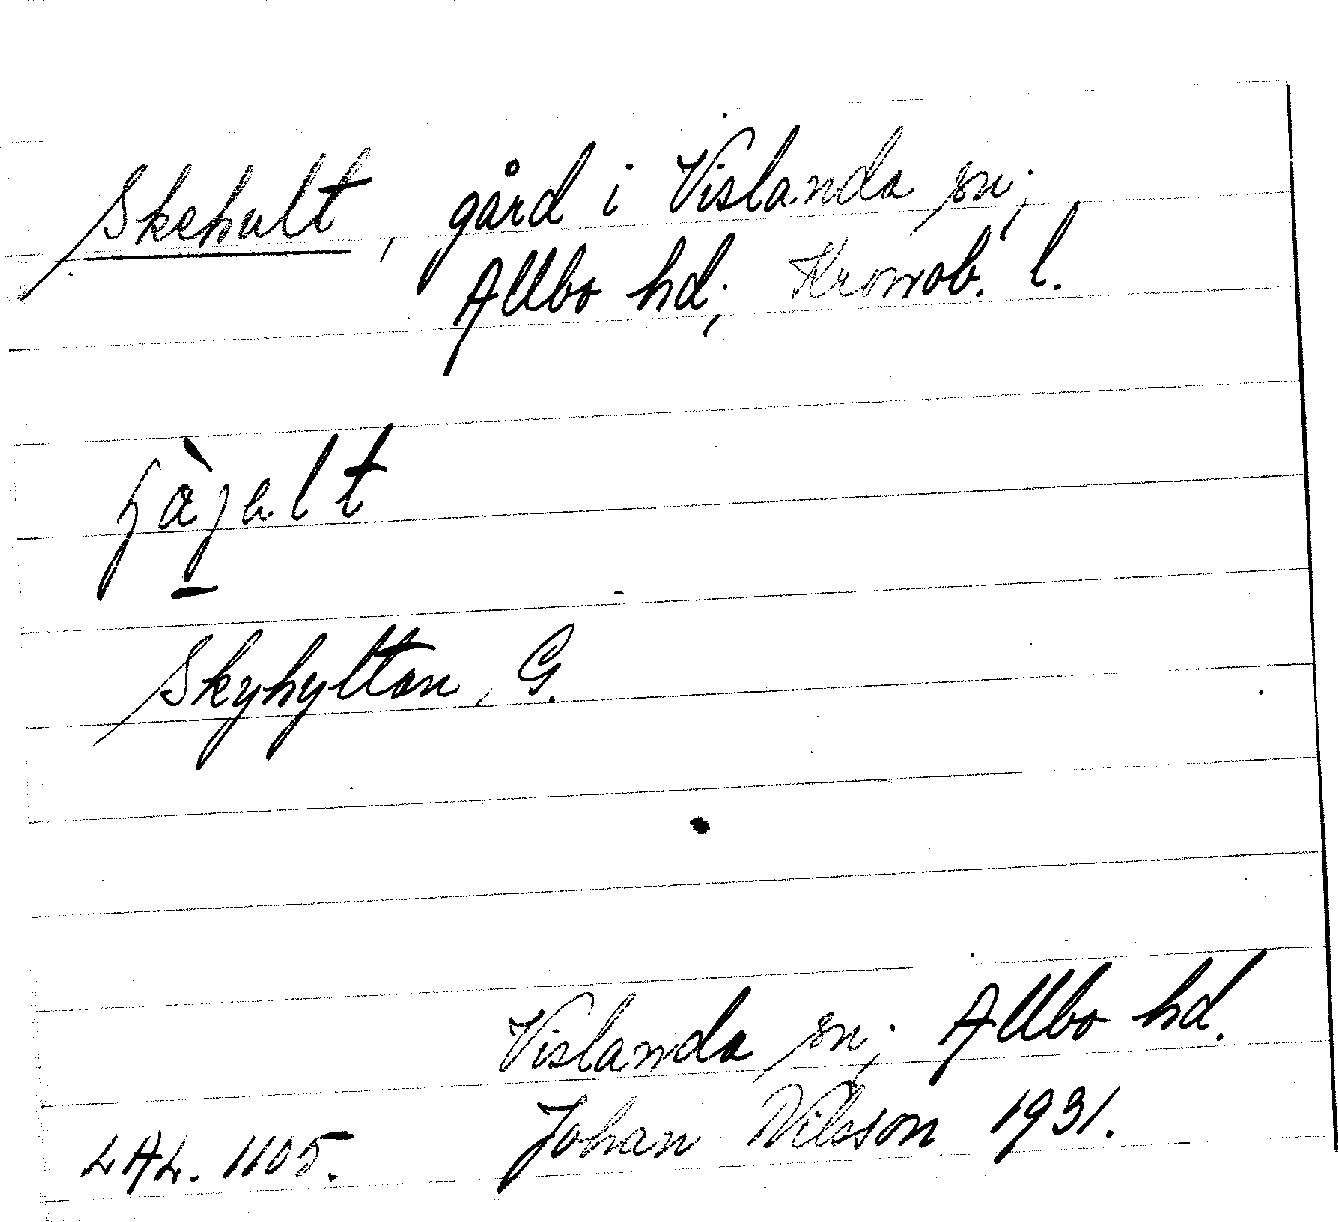 Skehult, gård i Vislanda sn;
Allbo hd; Kronob. l.
Skyhyltan, G.
Vislanda sn; Allbo hd.
LAL. 1105. Johan Nilsson 1931.